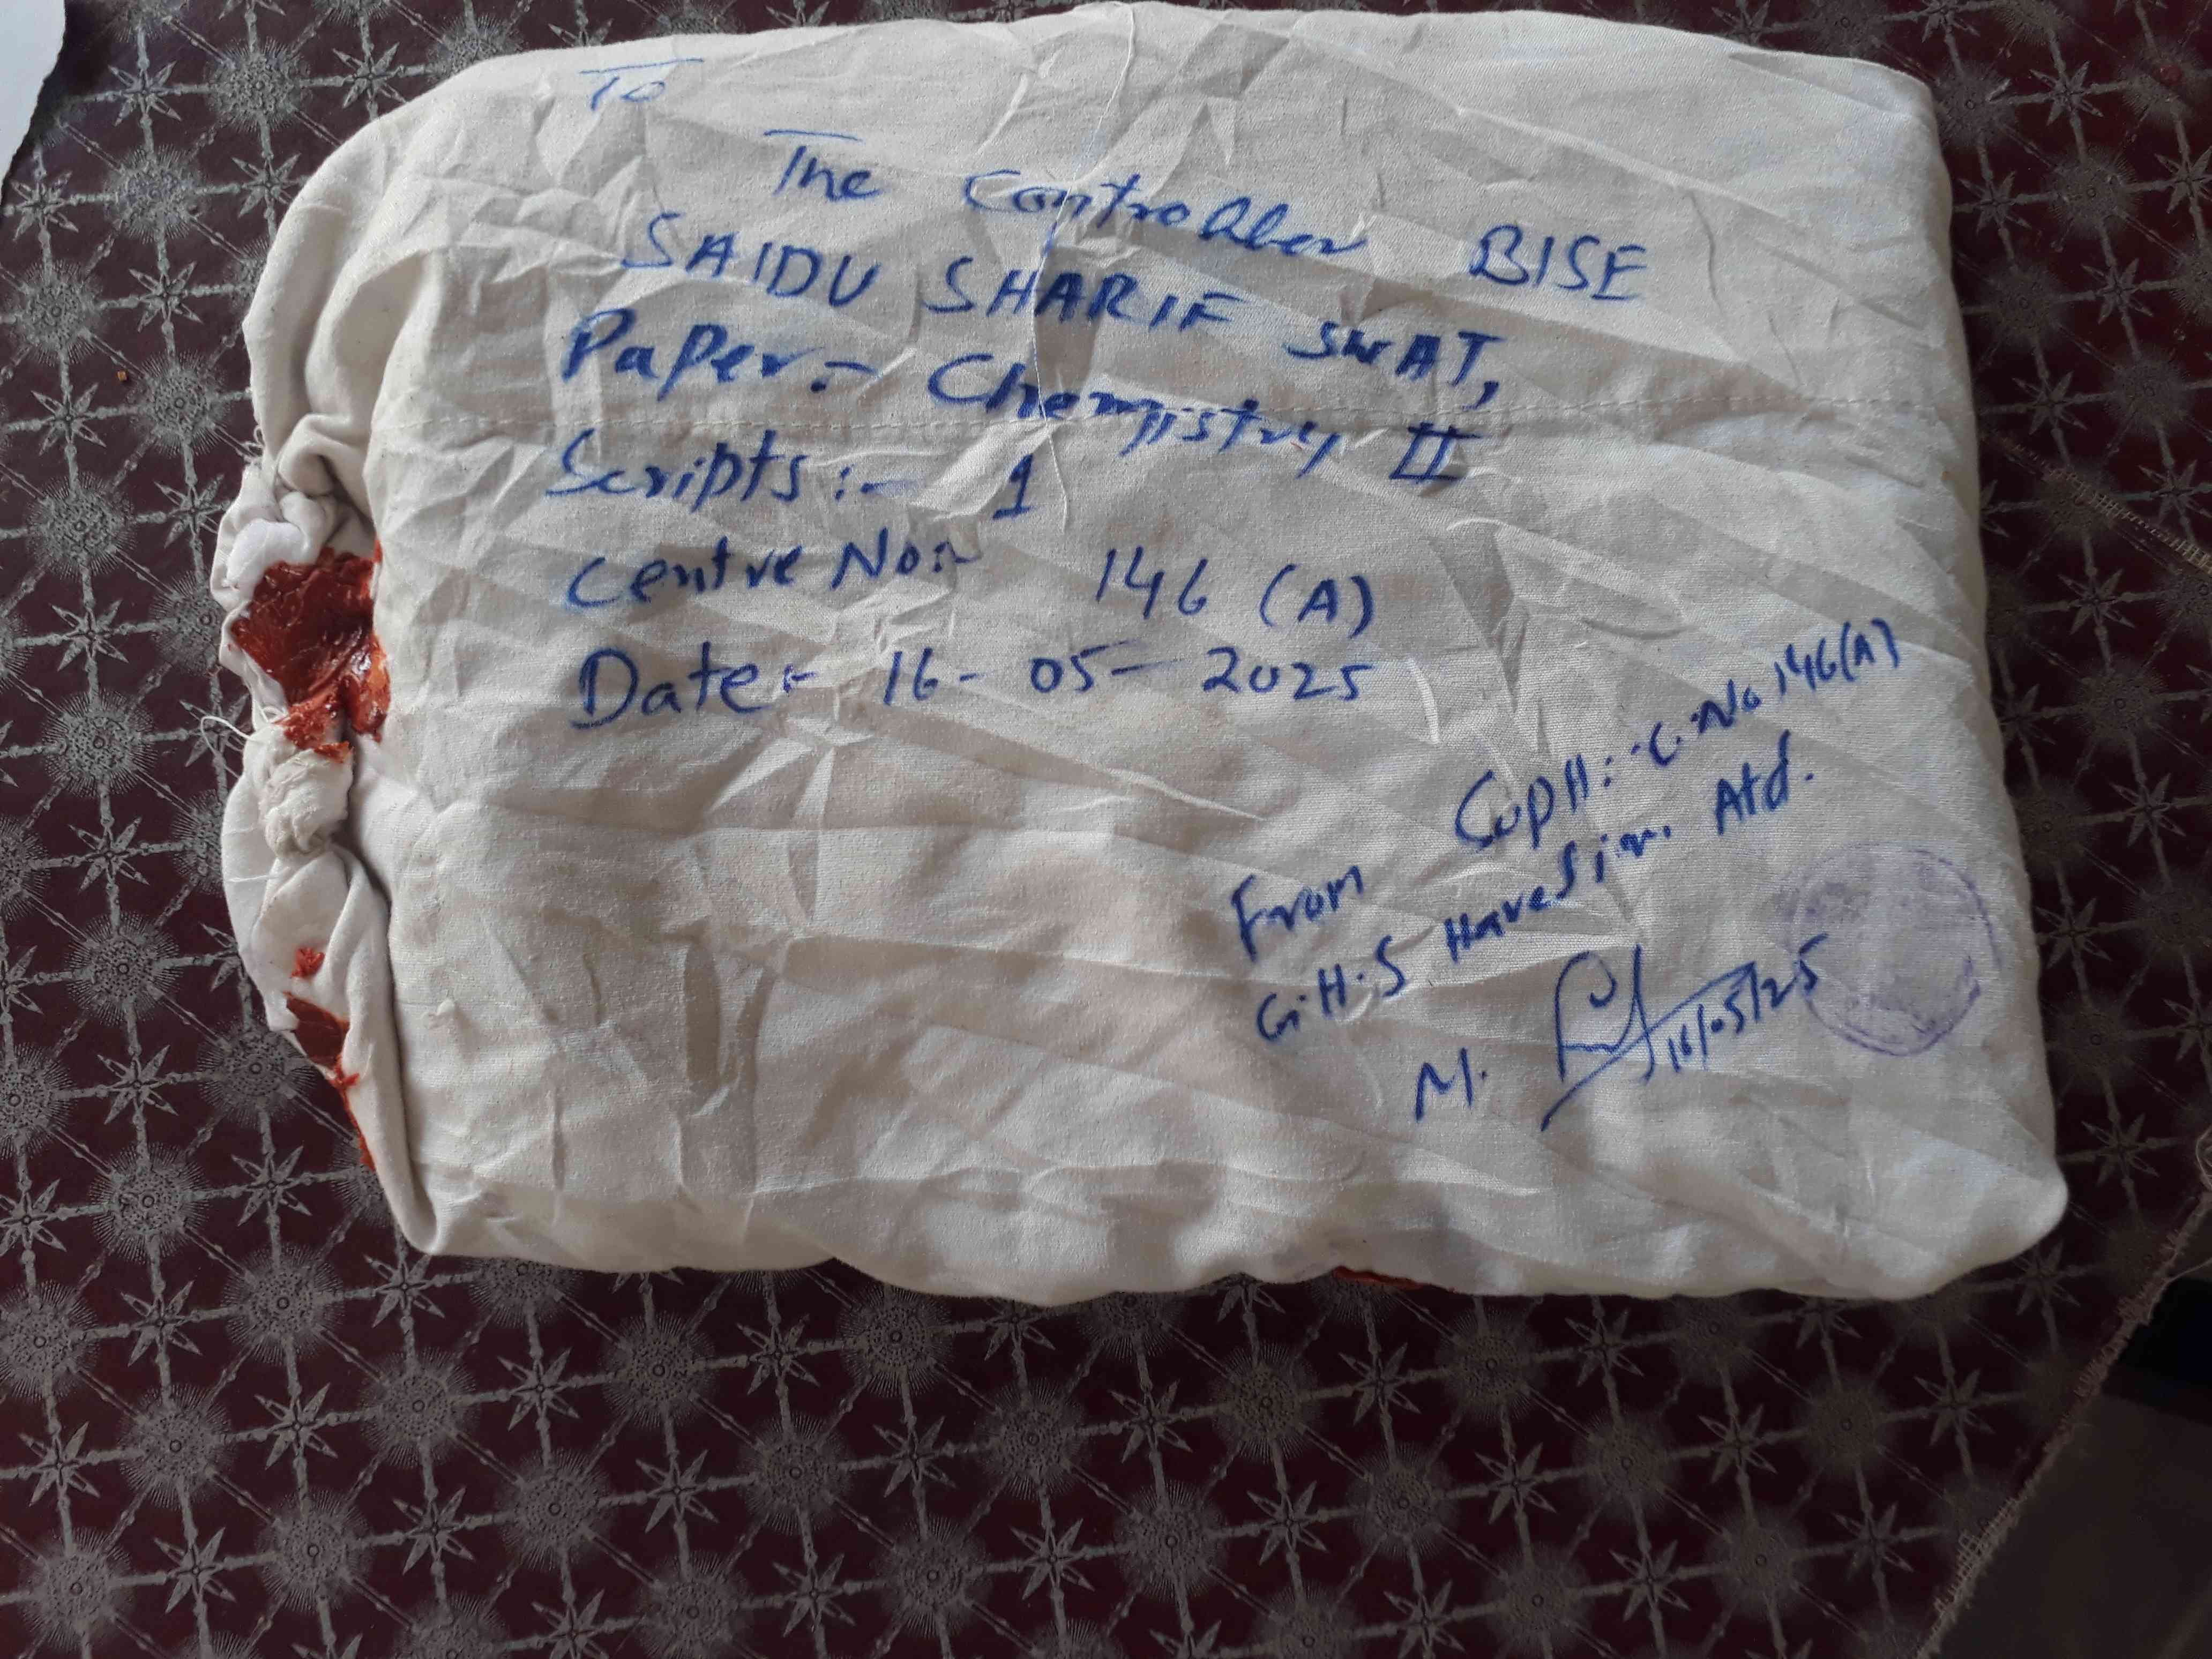 To
The Controller BISE
SAIDU SHARIF SWAT,
Paper:- Chemistry II
Scripts:- 1
Centre No:- 146 (A)
Date:- 16-05-2025
From Supdt:- C.No 146(A)
G.H.S Havelian Atd.
M.
16/05/25